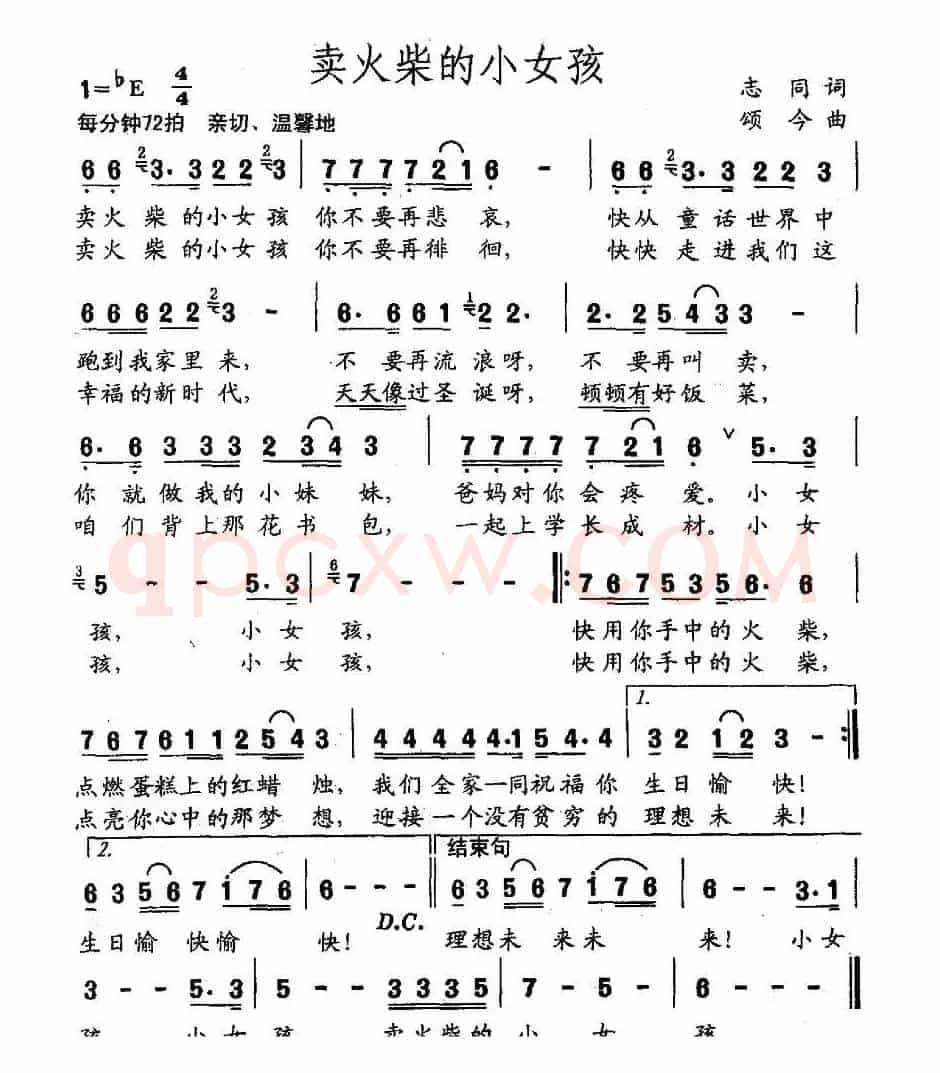 卖火柴的小女孩
1=♭E 4/4
志同词
每分钟72拍 亲切、温馨地
颂今曲
6 6 2 3. 3 2 2 2 3 | 7 7 7 7 2 1 6 - | 6 6 2 3. 3 2 2 3 |
卖火柴的小女孩你不要再悲哀, 快从童话世界中
卖火柴的小女孩你不要再徘徊, 快快走进我们这
6 6 6 2 2 2 3 - | 6. 6 6 6 1 2 2. | 2. 2 5 4 3 3 - |
跑到我家里来, 不要再流浪呀, 不要再叫卖,
幸福的新时代, 天天像过圣诞呀, 顿顿有好饭菜,
6. 6 3 3 3 2 3 4 3 | 7 7 7 7 7 2 1 6 ∨ 5. 3 |
你就做我的小妹妹, 爸妈对你会疼爱。小女
咱们背上那花书包, 一起上学长成材。小女
qpcxw.COM
3 5 - - 5. 3 | 6 7 - - - |: 7 6 7 5 3 5 6. 6 |
孩, 小女孩, 快用你手中的火柴,
孩, 小女孩, 快用你手中的火柴,
1.
7 6 7 6 1 1 2 5 4 3 | 4 4 4 4 4. 1 5 4. 4 | 3 2 1 2 3 - :|
点燃蛋糕上的红蜡烛, 我们全家一同祝福你生日愉快!
点亮你心中的那梦想, 迎接一个没有贫穷的理想未来!
2. 结束句
6 3 5 6 7 i 7 6 | 6 - - - || 6 3 5 6 7 i 7 6 | 6 - - 3. 1 |
D.C.
生日愉快愉快! 理想未来未来! 小女
3 - - 5. 3 | 5 - - 3 3 3 5 | 7 - 5 - | 6 - - ||
孩 小女孩 卖火柴的小女孩